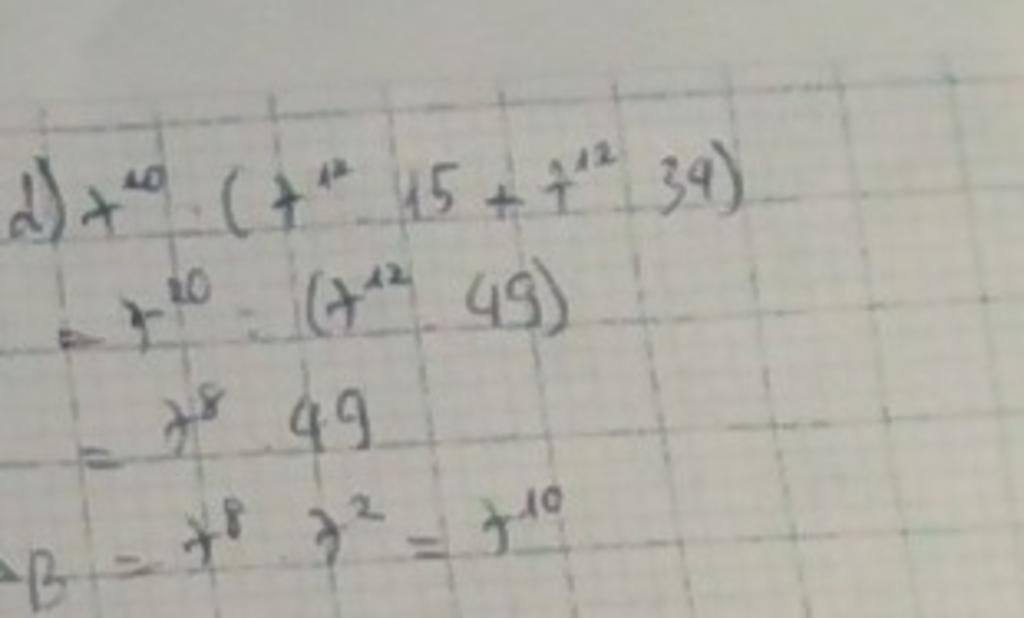 d) 7²⁰ : (7¹² 15 + 7¹² 34)
= 7²⁰ : (7¹² 49)
= 7⁸ 49
B = 7⁸ 7² = 7¹⁰